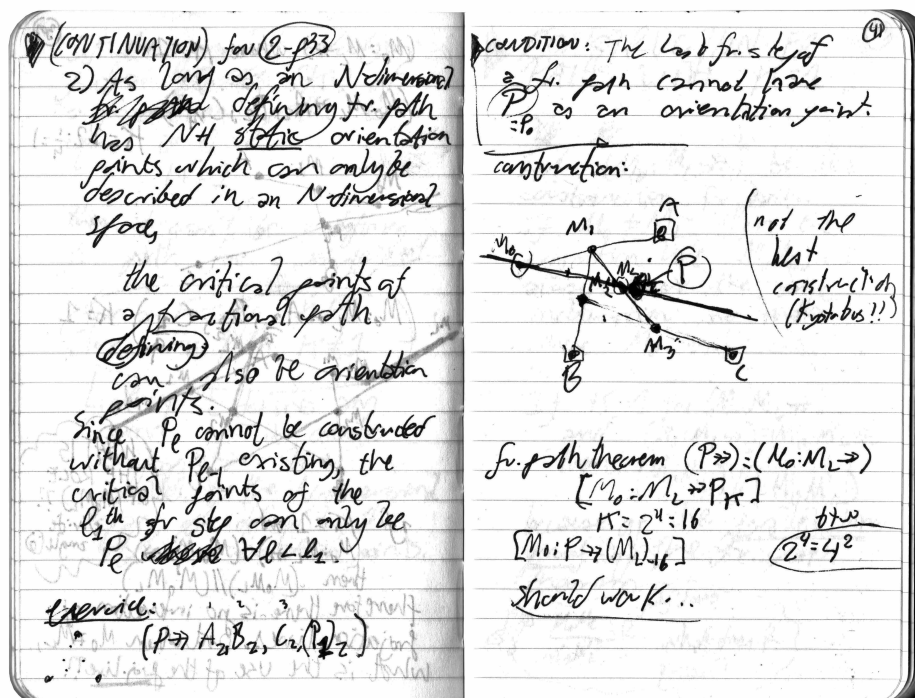 (CONTINUATION) for (2-p33)
2) As long as, an N-dimensional
defining fr. path
has N+1 static orientation
points which can only be
described in an N-dimensional
space,
the critical points of
a fractional path
(defining)
can also be orientation
points.
Since Pe cannot be constructed
without Pe-1 existing, the
critical points of the
l₁th fr step can only be
Pe ∀l<l₁.
exercise:
1 2 3
(P↠ A₂, B₂, C₂, (P₁)₂)
41
CONDITION: The last fr. step of
a fr. path cannot have
P as an orientation point.
=P₀
construction:
A
M₁
M₀
P
M₂
M₃
B
C
not the
best
construction
fr. path theorem (P↠):(M₀:M₂→)
[M₀:M₂↠P_K]
K=2⁴=16
btw
2⁴=4²
[M₀:P↠(M₂)₁₆]
should work...